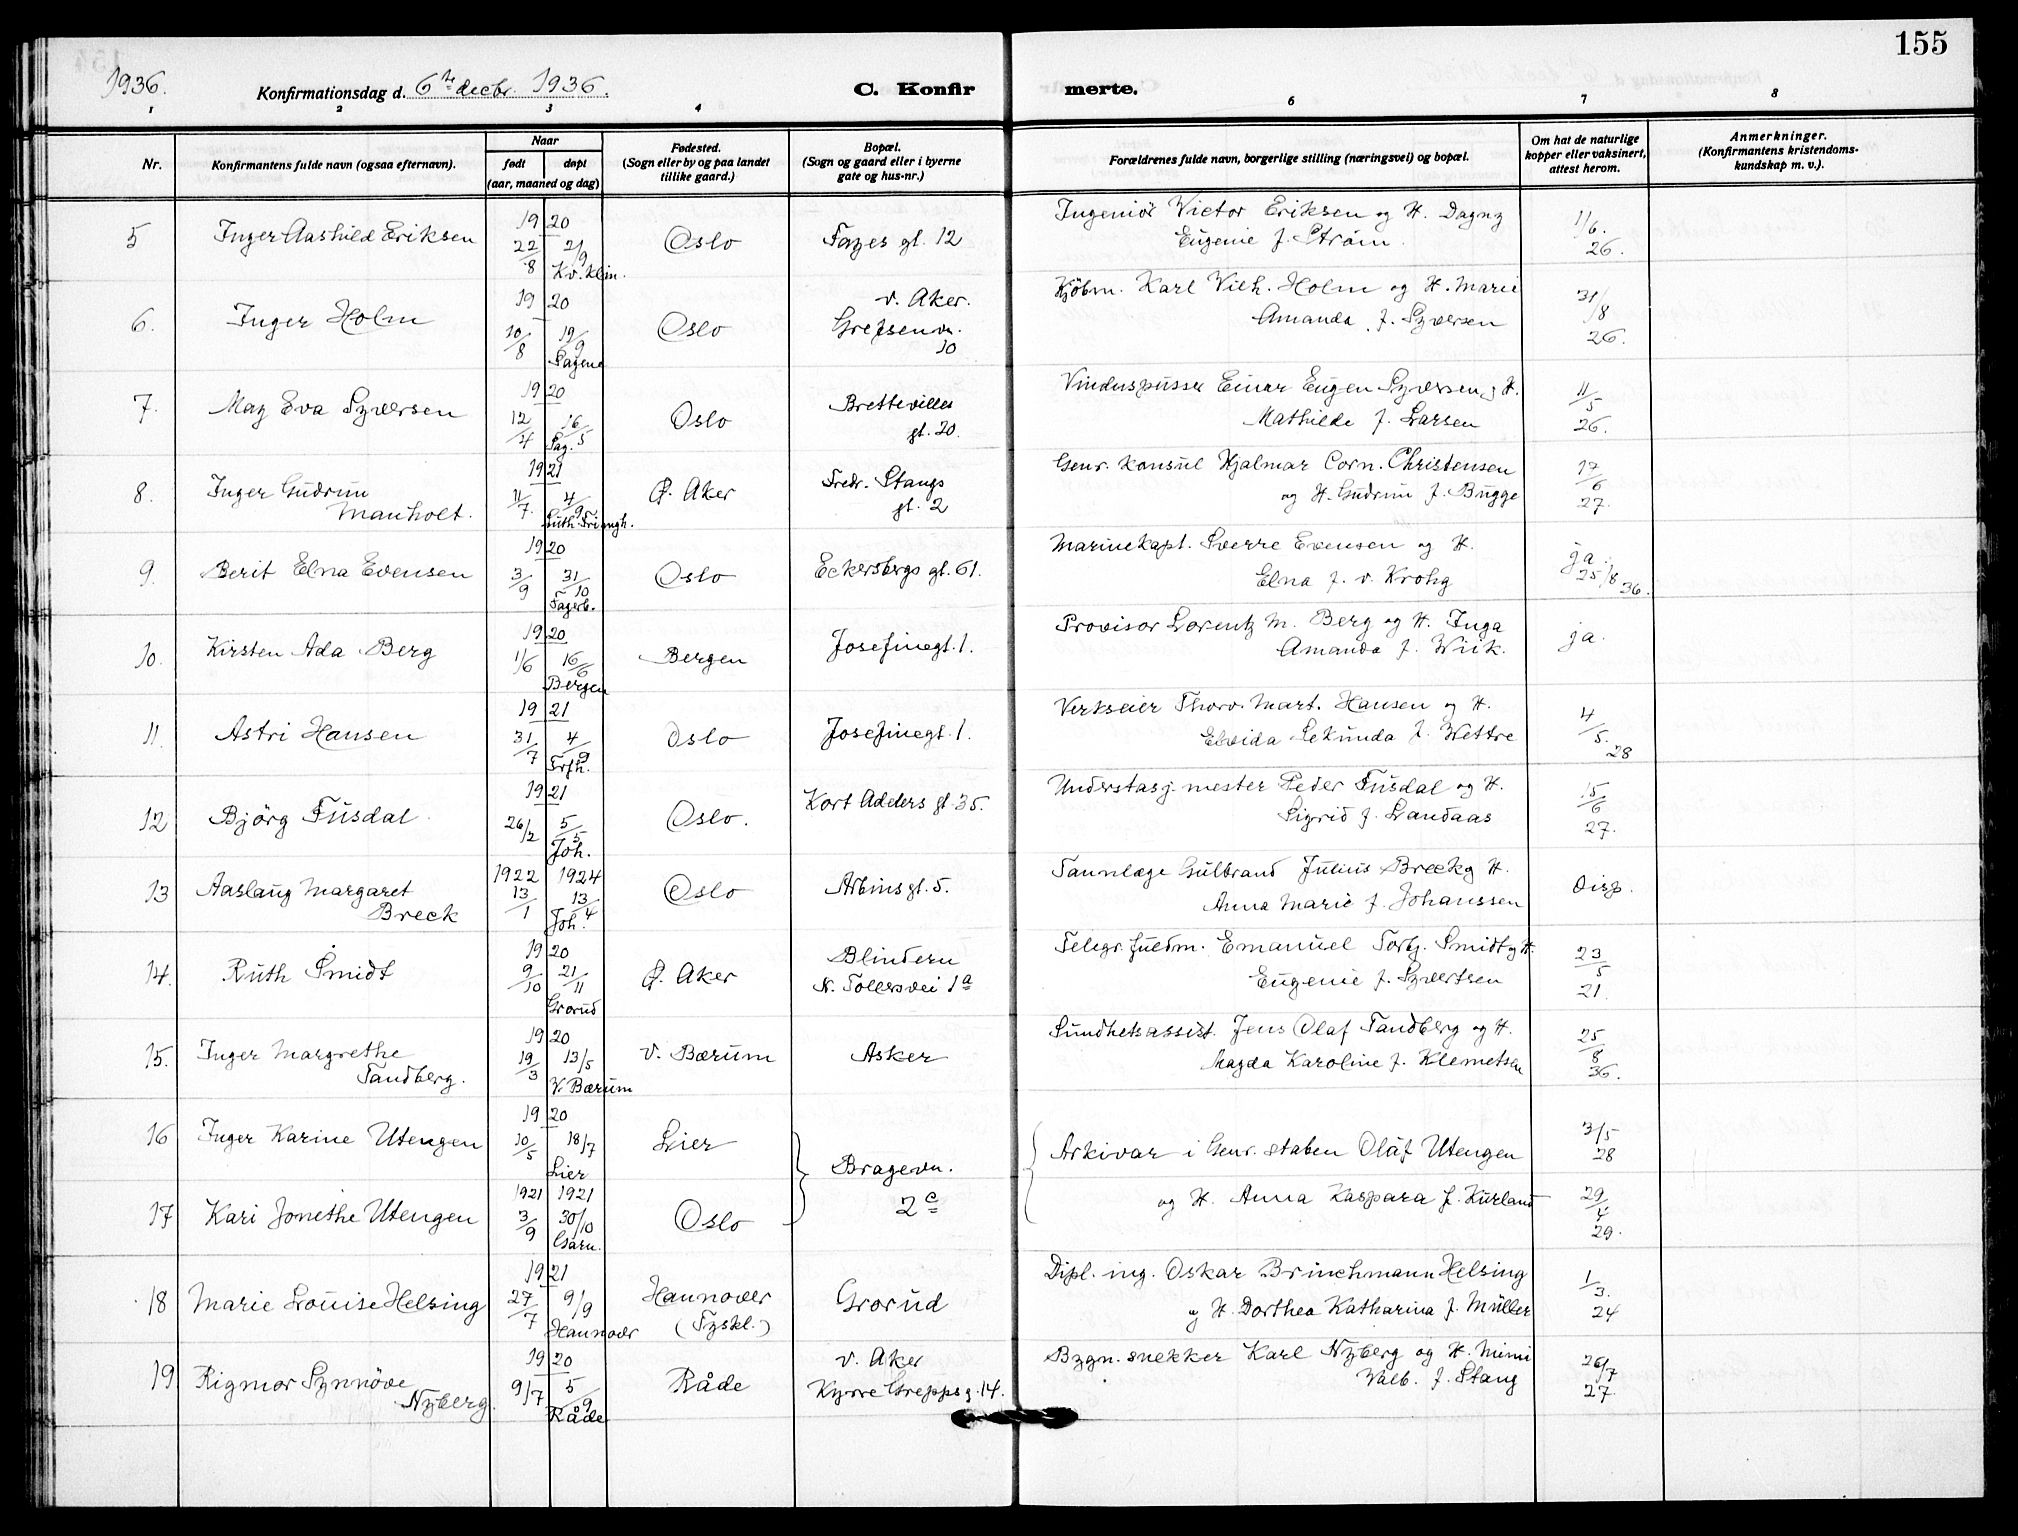 155
1936.
Konfirmationsdag d. 6te decbr. 1936.
C. Konfirmerte.
1 2 3 4 5 6 7 8
Nr.
Konfirmantens fulde navn (ogsaa efternavn).
Naar
født
døpt
(aar, maaned og dag)
Fødested.
(Sogn eller by og paa landet
tillike gaard.)
Bopæl.
(Sogn og gaard eller i byerne
gate og hus-nr.)
Forældrenes fulde navn, borgerlige stilling (næringsvei) og bopæl.
Om hat de naturlige
kopper eller vaksinert,
attest herom.
Anmerkninger.
(Konfirmantens kristendoms-
kundskap m. v.).
5 Inger Aashild Eriksen
1920
22/8 2/9
Kv.klin.
Oslo
Fayes gt. 12
Ingeniør Victor Eriksen og H. Dagny
Eugenie f. Strøm.
1/6.
26.
6. Inger Holm
1920
10/8 19/9
Sagene
Oslo
v. Aker.
Grefsenvn.
10
Kjøbm. Karl Vilh. Holm og H. Marie
Amanda f. Syversen
31/8
26.
7. May Eva Syversen
1920
12/4 16/5
Sag.
Oslo
Brettevilles
gt. 20.
Vinduspusser Einar Eugen Syversen og H.
Mathilde f. Larsen
11/5
26.
8. Inger Gudrun
Manholt.
1921
11/7 4/9
Ø. Aker
Fredr. Stangs
gt. 2
Genr. Konsul Hjalmar Corn. Christensen
og H. Gudrun f. Bugge
17/6
27.
9 Berit Elna Evensen
1920
3/9 31/10
Fagerb.
Oslo
Eckersbergs gt. 61.
Marinekapt. Sverre Evensen og H.
Elna f. v. Krohg
ja.
25/8 36.
10. Kirsten Ada Berg
1920
1/6 16/6
Bergen
Bergen
Josefinegt. 1.
Provisor Lorentz M. Berg og H. Inga
Amanda f. Wiik.
ja.
11. Astri Hansen
1921
31/7 4/9
Trfh.
Oslo
Josefinegt. 1.
Verkseier Thorv. Mart. Hansen og H.
Elvida Sekunda f. Wettre
4/5.
28
12 Bjørg Fusdal
1921
26/2 5/5
Joh.
Oslo.
Kort Adelers gt. 35.
Understasj. mester Peder Fusdal og H.
Sigrid f. Landaas
15/6
27.
13 Aaslaug Margaret
Breck
1922 1924
13/1 13/4
Joh.
Oslo
Arbins gt. 5.
Tannlæge Gulbrand Julius Breck og H.
Anna Marie f. Johanssen
Disp.
14. Ruth Smidt
1920
9/10 21/11
Grorud
Ø. Aker
Blindern
N. Tollersvei 1a
Telegr. fuldm. Emanuel Torbj. Smidt og H.
Eugenie f. Syvertsen
23/5
21.
15. Inger Margrethe
Tandberg.
1920
19/3 13/5
V. Bærum
V. Bærum
Asker
Sundhetsassist. Jens Olaf Tandberg og H.
Magda Karoline f. Klemetsen
25/8
36.
16 Inger Karine Utengen
1920
10/5 18/7
Lier
Lier
Bragevn.
2c
Arkivar i Genr. staben Olaf Utengen
og H. Anna Kaspara f. Kurland
3/5
28
17 Kari Jonethe Utengen
1921 1921
3/9 30/10
Garn.
Oslo
29/4
29.
18 Marie Louise Helsing
1921
27/7 9/9
Hannover
Hannover
(Tyskl.)
Grorud
Dipl. ing. Oskar Brinchmann Helsing
og H. Dorthea Katharina f. Müller
1/3.
24
19 Rigmor Synnøve
Nyberg.
1920
9/7 5/9
Råde
Råde
v. Aker
Kyrre Grepps g. 14.
Bygn. snekker Karl Nyberg og H. Mimi
Valb. f. Stang
26/7
27.